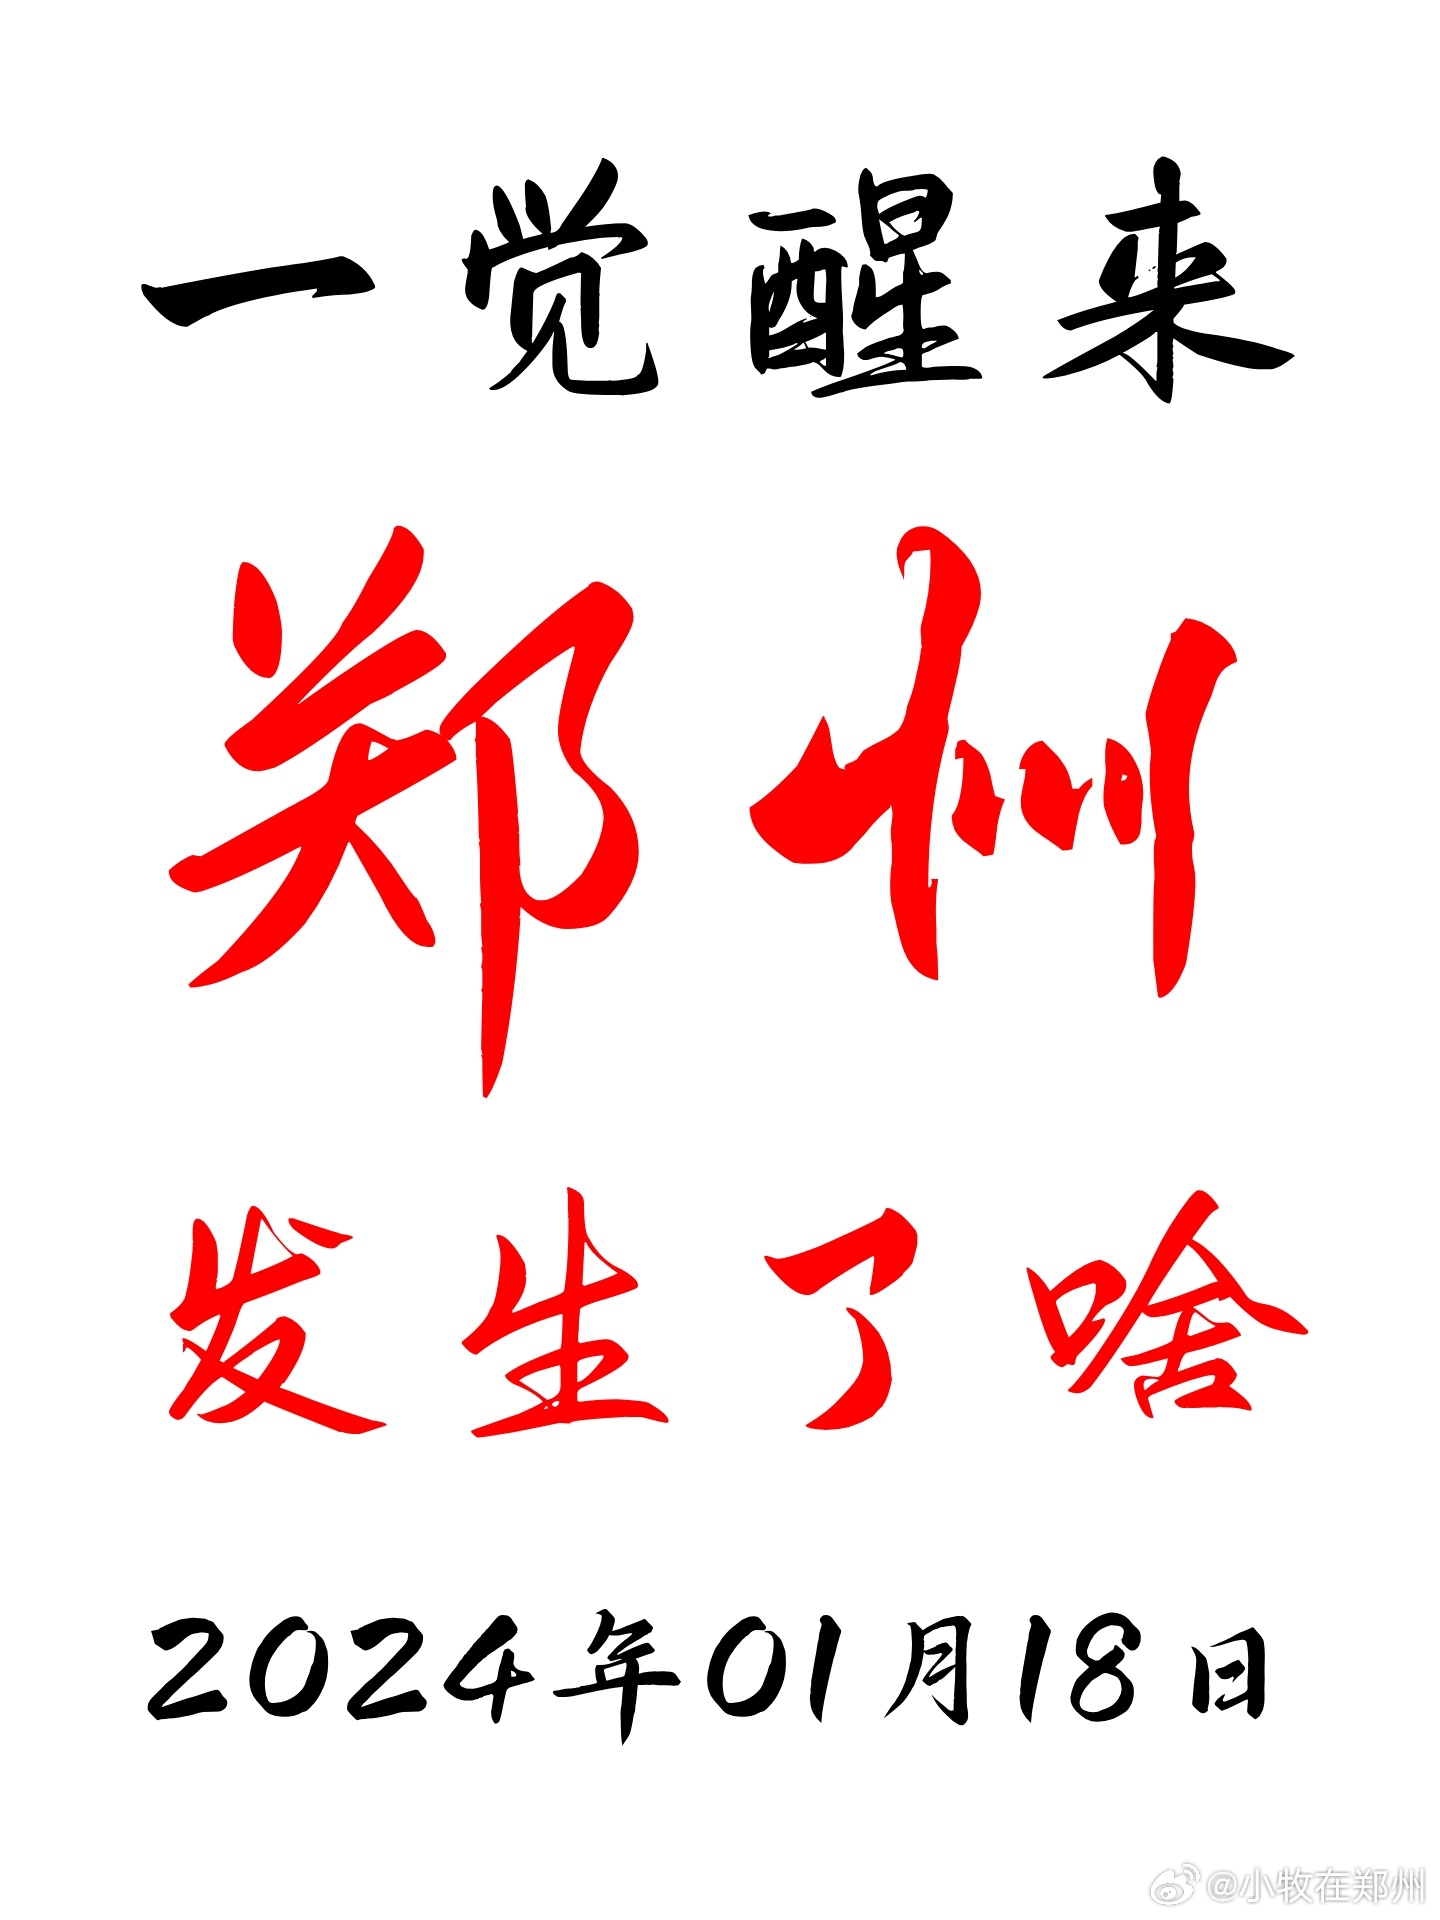 一觉醒来
郑州
发生了啥
2024年01月18日
@小牧在郑州